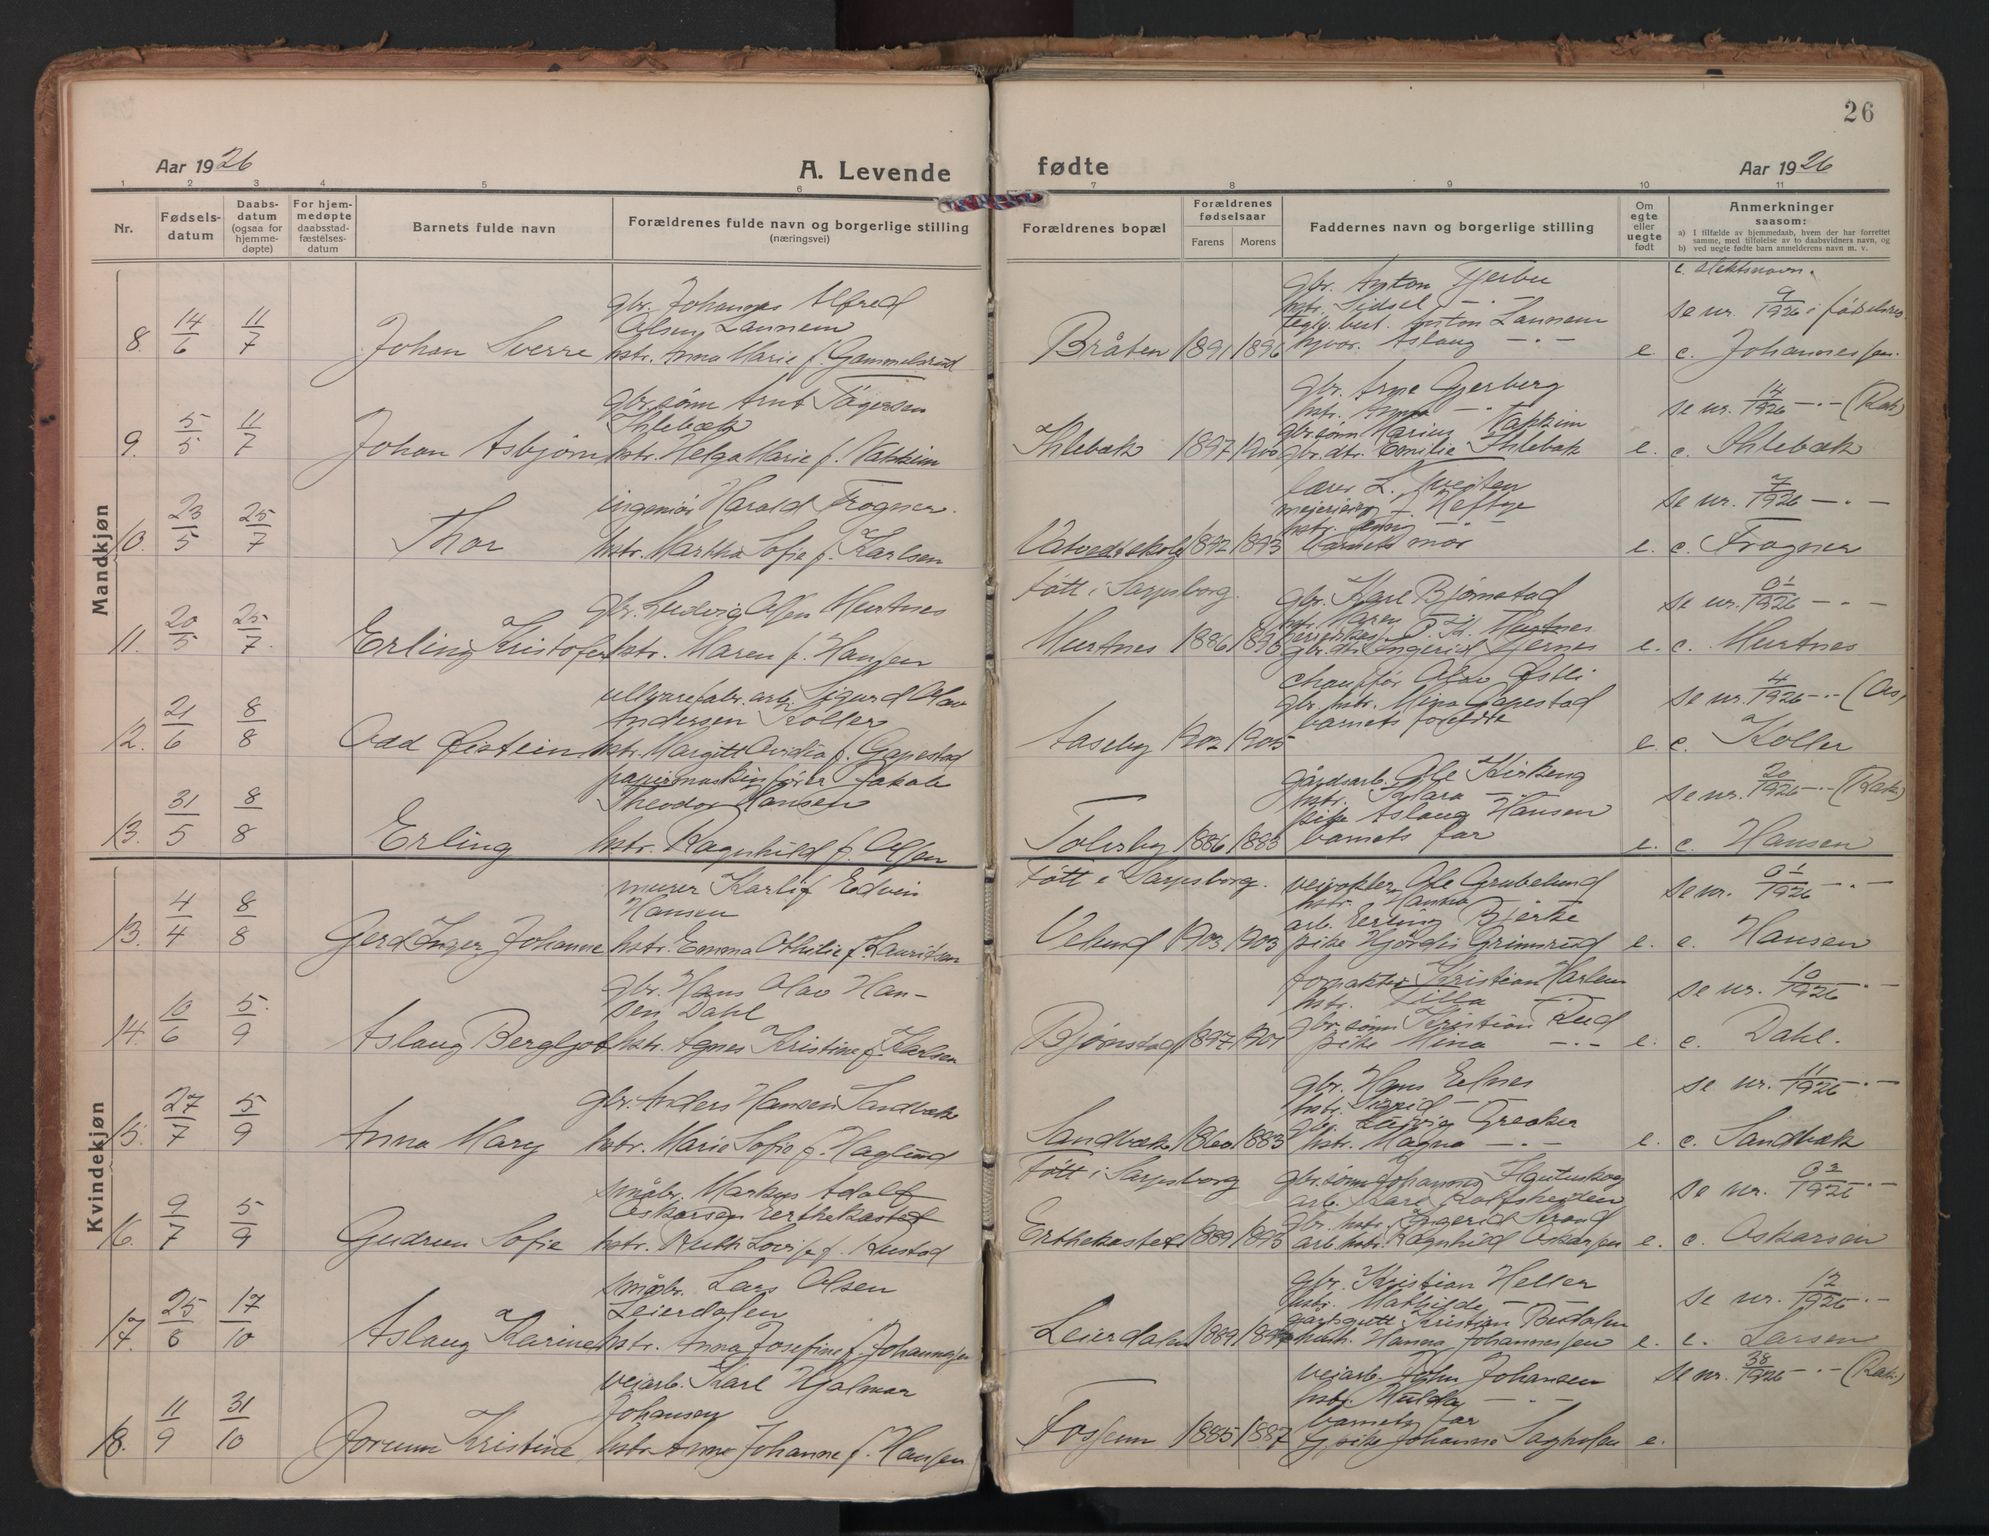 26
Aar 1926
A. Levende
fødte
Aar 1926
1 2 3 4 5 6 7 8 9 10 11
Nr.
Fødsels-
datum
Daabs-
datum
(ogsaa for
hjemme-
døpte)
For hjem-
medøpte
daabsstad-
fæstelses-
datum
Barnets fulde navn
Forældrenes fulde navn og borgerlige stilling
(næringsvei)
Forældrenes bopæl
Forældrenes
fødselsaar
Farens Morens
Faddernes navn og borgerlige stilling
Om
egte
eller
uegte
født
Anmerkninger
saasom:
a) I tilfælde av hjemmedaab, hvem der har forrettet
samme, med tilføielse av to daabsvidners navn, og
b) ved uegte fødte barn anmelderens navn m. v.
c. slektsnavn.
Mandkjøn
8. 14/6 11/7
Johan Sverre
gbr. Johannes Alfred
Olsen Lannem
hstr. Anna Marie f. Gammelsrud
Bråten 1891 1896
gbr. Anton Tjerbu
hstr. Sidsel —
teglv.best. Anton Lannem
Aslaug — . —
e.
se nr. 9/1926 i fødselsreg.
c. Johannessen.
9. 5/5 11/7
Johan Asbjørn
gbr.sønn Arnt Tågersen
Ihlebæk
hstr. Helga Marie f. Vakkim
Ihlebæk 1897 1900
gbr. Arne Gjerberg
hstr. Anna — . —
gbr.sønn Marius Vakkim
gbr.dtr. Emilie Ihlebæk
e.
se nr. 14/1926 — . — (Rak)
c. Ihlebæk
10. 23/5 25/7
Thor
ingeniør Harald Frogner.
hstr. Martha Sofie f. Karlsen
Vatvedt skole 1892 1893
lærer L. Tveiten
meierieier Heftye
hstr. Jenny — . —
barnets mor
e.
se nr. 7/1926 — . —
c. Frogner
11. 20/5 25/7
Erling Kristofer
gbr. Ludvig Olsen Murtnes
hstr. Maren f. Hansen
født i Sarpsborg.
Murtnes 1886 1896
gbr. Karl Bjørnstad
hstr. Maren
Murtnes
gbr.dtr. Engerid Tjernes
e.
se nr. 01/1926 — . —
c. Murtnes
12. 21/6 8/8
Odd Øistein
ullvarefabr.arb. Sigurd Olav
Andersen Koller
hstr. Margitt Ovidia f. Gapestad
Aaseby 1902 1905
chauffør Olav Østli
gbr. hstr. Mina Gapestad
barnets foreldre
e.
se nr. 4/1926 — . — (Os)
c. Koller
13. 31/5 8/8
Erling
papirmaskinfører Jakob
Theodor Hansen
hstr. Ragnhild f. Olsen
Tolisby 1886 1885
gårdsarb. Ole Kirkeng
hstr. Klara —
pike Aslaug Hansen
barnets far
e.
se nr. 20/1926 — . — (Rak)
c. Hansen
Kvindekjøn
13. 4/4 8/8
Gerd Inger Johanne
murer Karlif Edvin
Hansen
hstr. Emma Othilie f. Lauritsen
Født i Sarpsborg.
Velund 1903 1903
veivokter Ole Grubelund
hstr. Hanna
arb. Erling Bjerke
pike Hjørdis Grimsrud
e.
se nr. 01/1926 — . —
c. Hansen
14. 10/6 5/9
Aslaug Bergljot
gbr. Hans Olav Han-
sen Dahl
hstr. Agnes Kristine f. Karlsen
Bjørnstad 1897 1901
forpakter Kristian Harlem
hstr. Lilla — . —
gbr.sønn Kristian Rud
pike Mina — . —
e.
se nr. 10/1926
c. Dahl.
15. 27/7 5/9
Anna Mary
gbr. Anders Hansen Sandbæk
hstr. Marie Sofie f. Haglund
Sandbæk 1860 1883
gbr. Hans Eelnes
hstr. Sigrid —
gbr. Ludvig Greaker
hstr. Magna — . —
e.
se nr. 11/1926 — . —
c. Sandbæk
16. 9/7 5/9
Gudrun Sofie
småbr. Markus Adolf
Oskarsen Erthekastet
hstr. Ruth Lovise f. Rustad
Født i Sarpsborg
Erthekastet 1889 1895
gbr.sønn Johannes
arb. Karl
gbr. hstr. Ingerid Strand
arb. hstr. Ragnhild Oskarsen
e.
se nr. 02/1926 — . —
c. Oskarsen
17. 25/8 17/10
Aslaug Karine
småbr. Lars Olsen
Leierdalen
hstr. Anna Josefine f. Johannessen
Leierdalen 1889
gbr. Kristian Heller
hstr. Mathilde — . —
gårdsgutt Kristian Budalsen
Hanna Johannessen
e.
se nr. 12/1926 — . —
c. Larsen
18. 11/9 31/10
Jorunn Kristine
veiarb. Karl Hjalmar
Johansen
hstr. Anna Johanne f. Hansen
Fossum 1885 1887
veiarb. John Johansen
hstr. Hulda — . —
barnets far
tj.pike Johanne Sagholen
e.
se nr. 38/1926 — . — (Rak.)